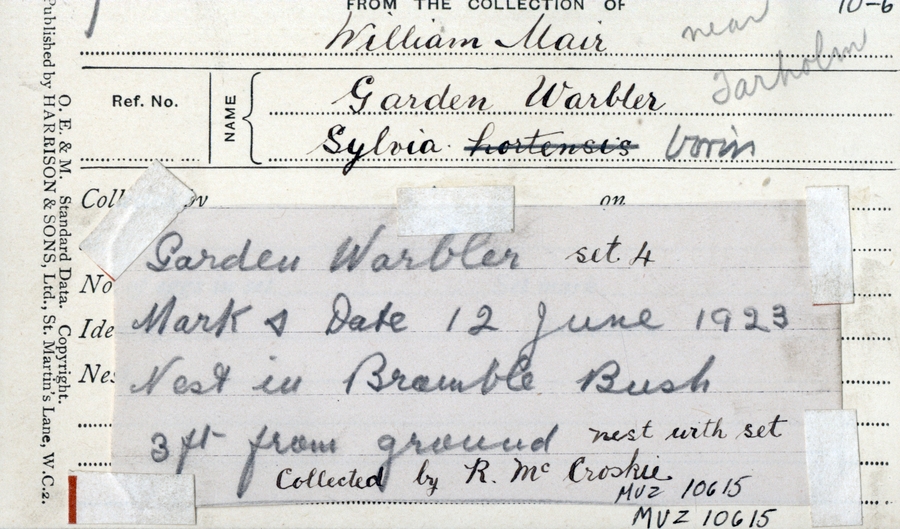 FROM THE COLLECTION OF 10-6
William Mair near
Tarholm
Ref. No. NAME Garden Warbler
Sylvia hortensis borin
on
Garden Warbler set 4
No
Mark & Date 12 June 1923
Ide
Nest in Bramble Bush
Nes
3 ft from ground nest with set
Collected by R. Mc Croskie
MVZ 10615
MVZ 10615
O. E. & M. Standard Data. Copyright.
Published by HARRISON & SONS, Ltd., St. Martin's Lane, W.C.2.